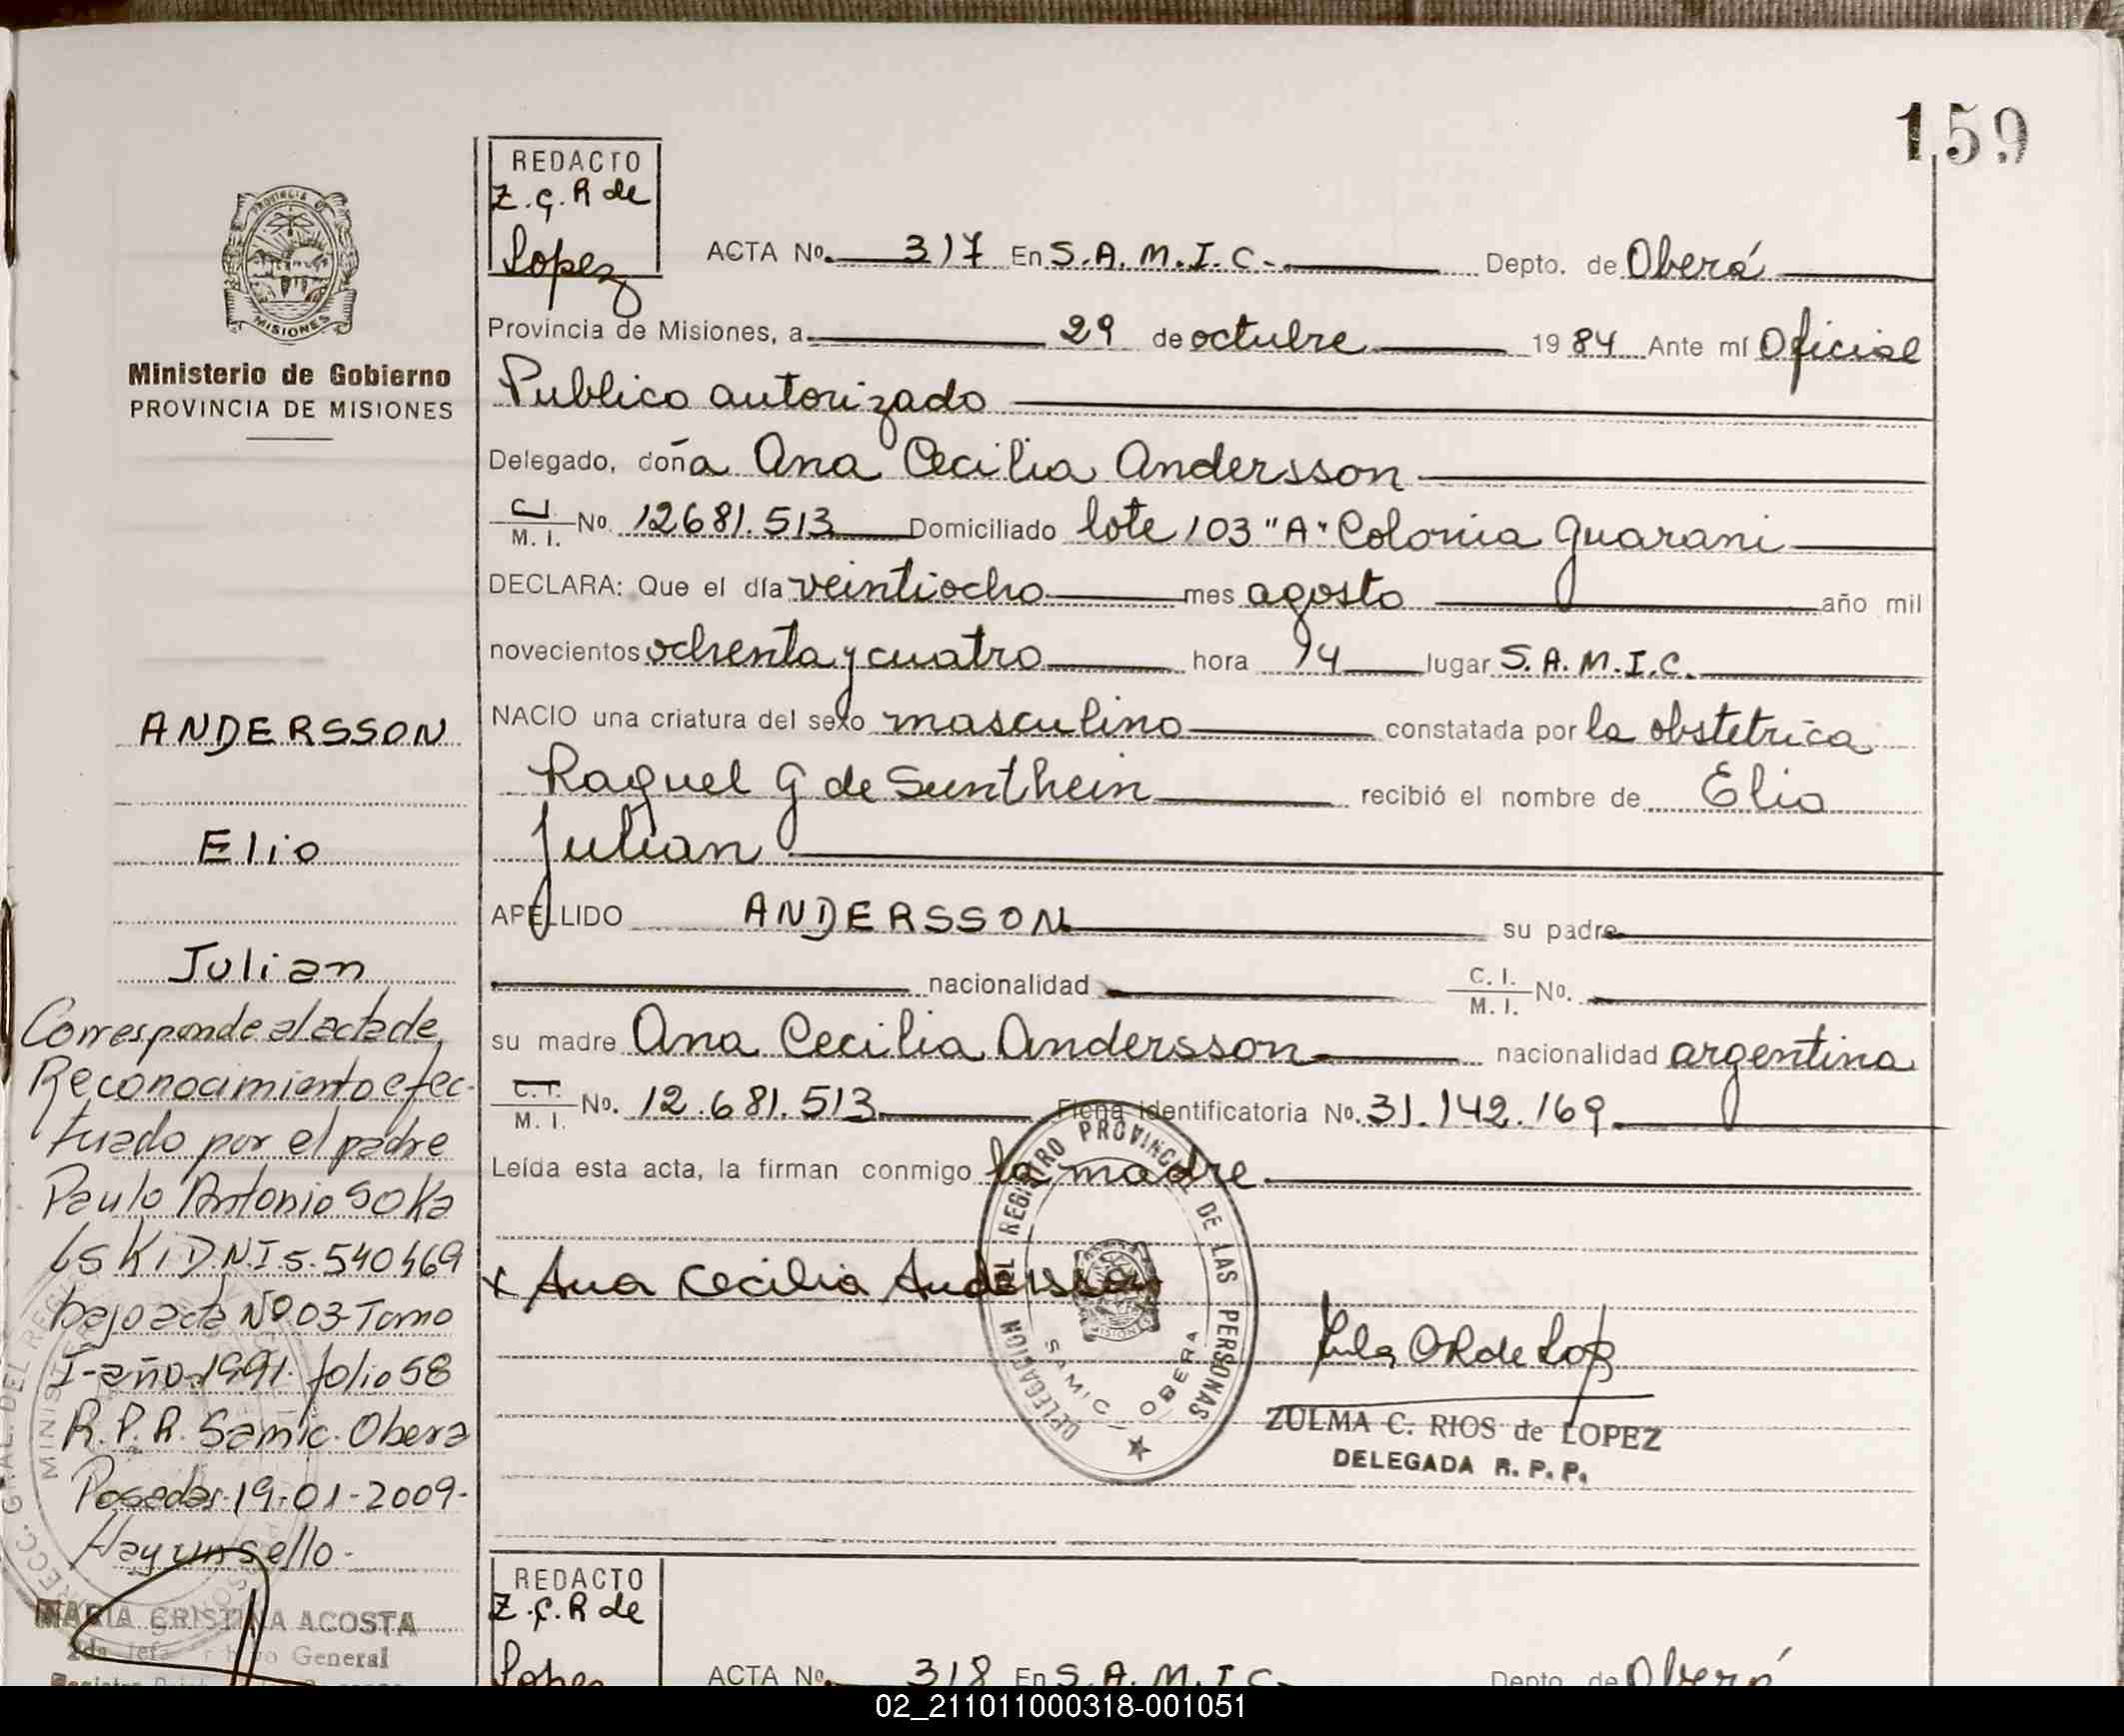 159
REDACTO
Z.C.R de
Lopez
ACTA No. 317 En S.A.M.I.C. Depto. de Oberá
PROVINCIA DE
MISIONES
Ministerio de Gobierno
PROVINCIA DE MISIONES
Provincia de Misiones, a 29 de octubre 1984 Ante mí Oficial
Publico autorizado
Delegado, doña Ana Cecilia Andersson
C.I.
M. I. No. 12681.513 Domiciliado lote 103 "A" Colonia Guarani
DECLARA: Que el día veintiocho mes agosto año mil
novecientos ochenta y cuatro hora 14 lugar S.A.M.I.C.
NACIO una criatura del sexo masculino constatada por la obstetrica
Raquel G de Sunthein recibió el nombre de Elio
Julian
APELLIDO ANDERSSON su padre
nacionalidad C. I.
M. I. No.
su madre Ana Cecilia Andersson nacionalidad argentina
C.I.
M. I. No. 12.681.513 Ficha identificatoria No. 31.142.169
Leída esta acta, la firman conmigo la madre
x Ana Cecilia Andersson
DELEGACION DEL REGISTRO PROVINCIAL DE LAS PERSONAS
SAMIC - OBERA
MISIONES
ZULMA C. RIOS de LOPEZ
DELEGADA R. P. P.
ANDERSSON
Elio
Julian
Corresponde al acta de
Reconocimiento efec-
tuado por el padre
Paulo Antonio SOKA
LSKI D.N.I 5.540469
bajo acta Nº 03-Tomo
I-año-1991. folio 58
R.P.R. Samic. Obera
Posadas-19-01-2009-
Hay un sello-
MARIA CRISTINA ACOSTA
2da Jefa General
REDACTO
Z.C.R de
Lopez
ACTA No. 318 En S.A.M.I.C. Depto. de Oberá
02_211011000318-001051